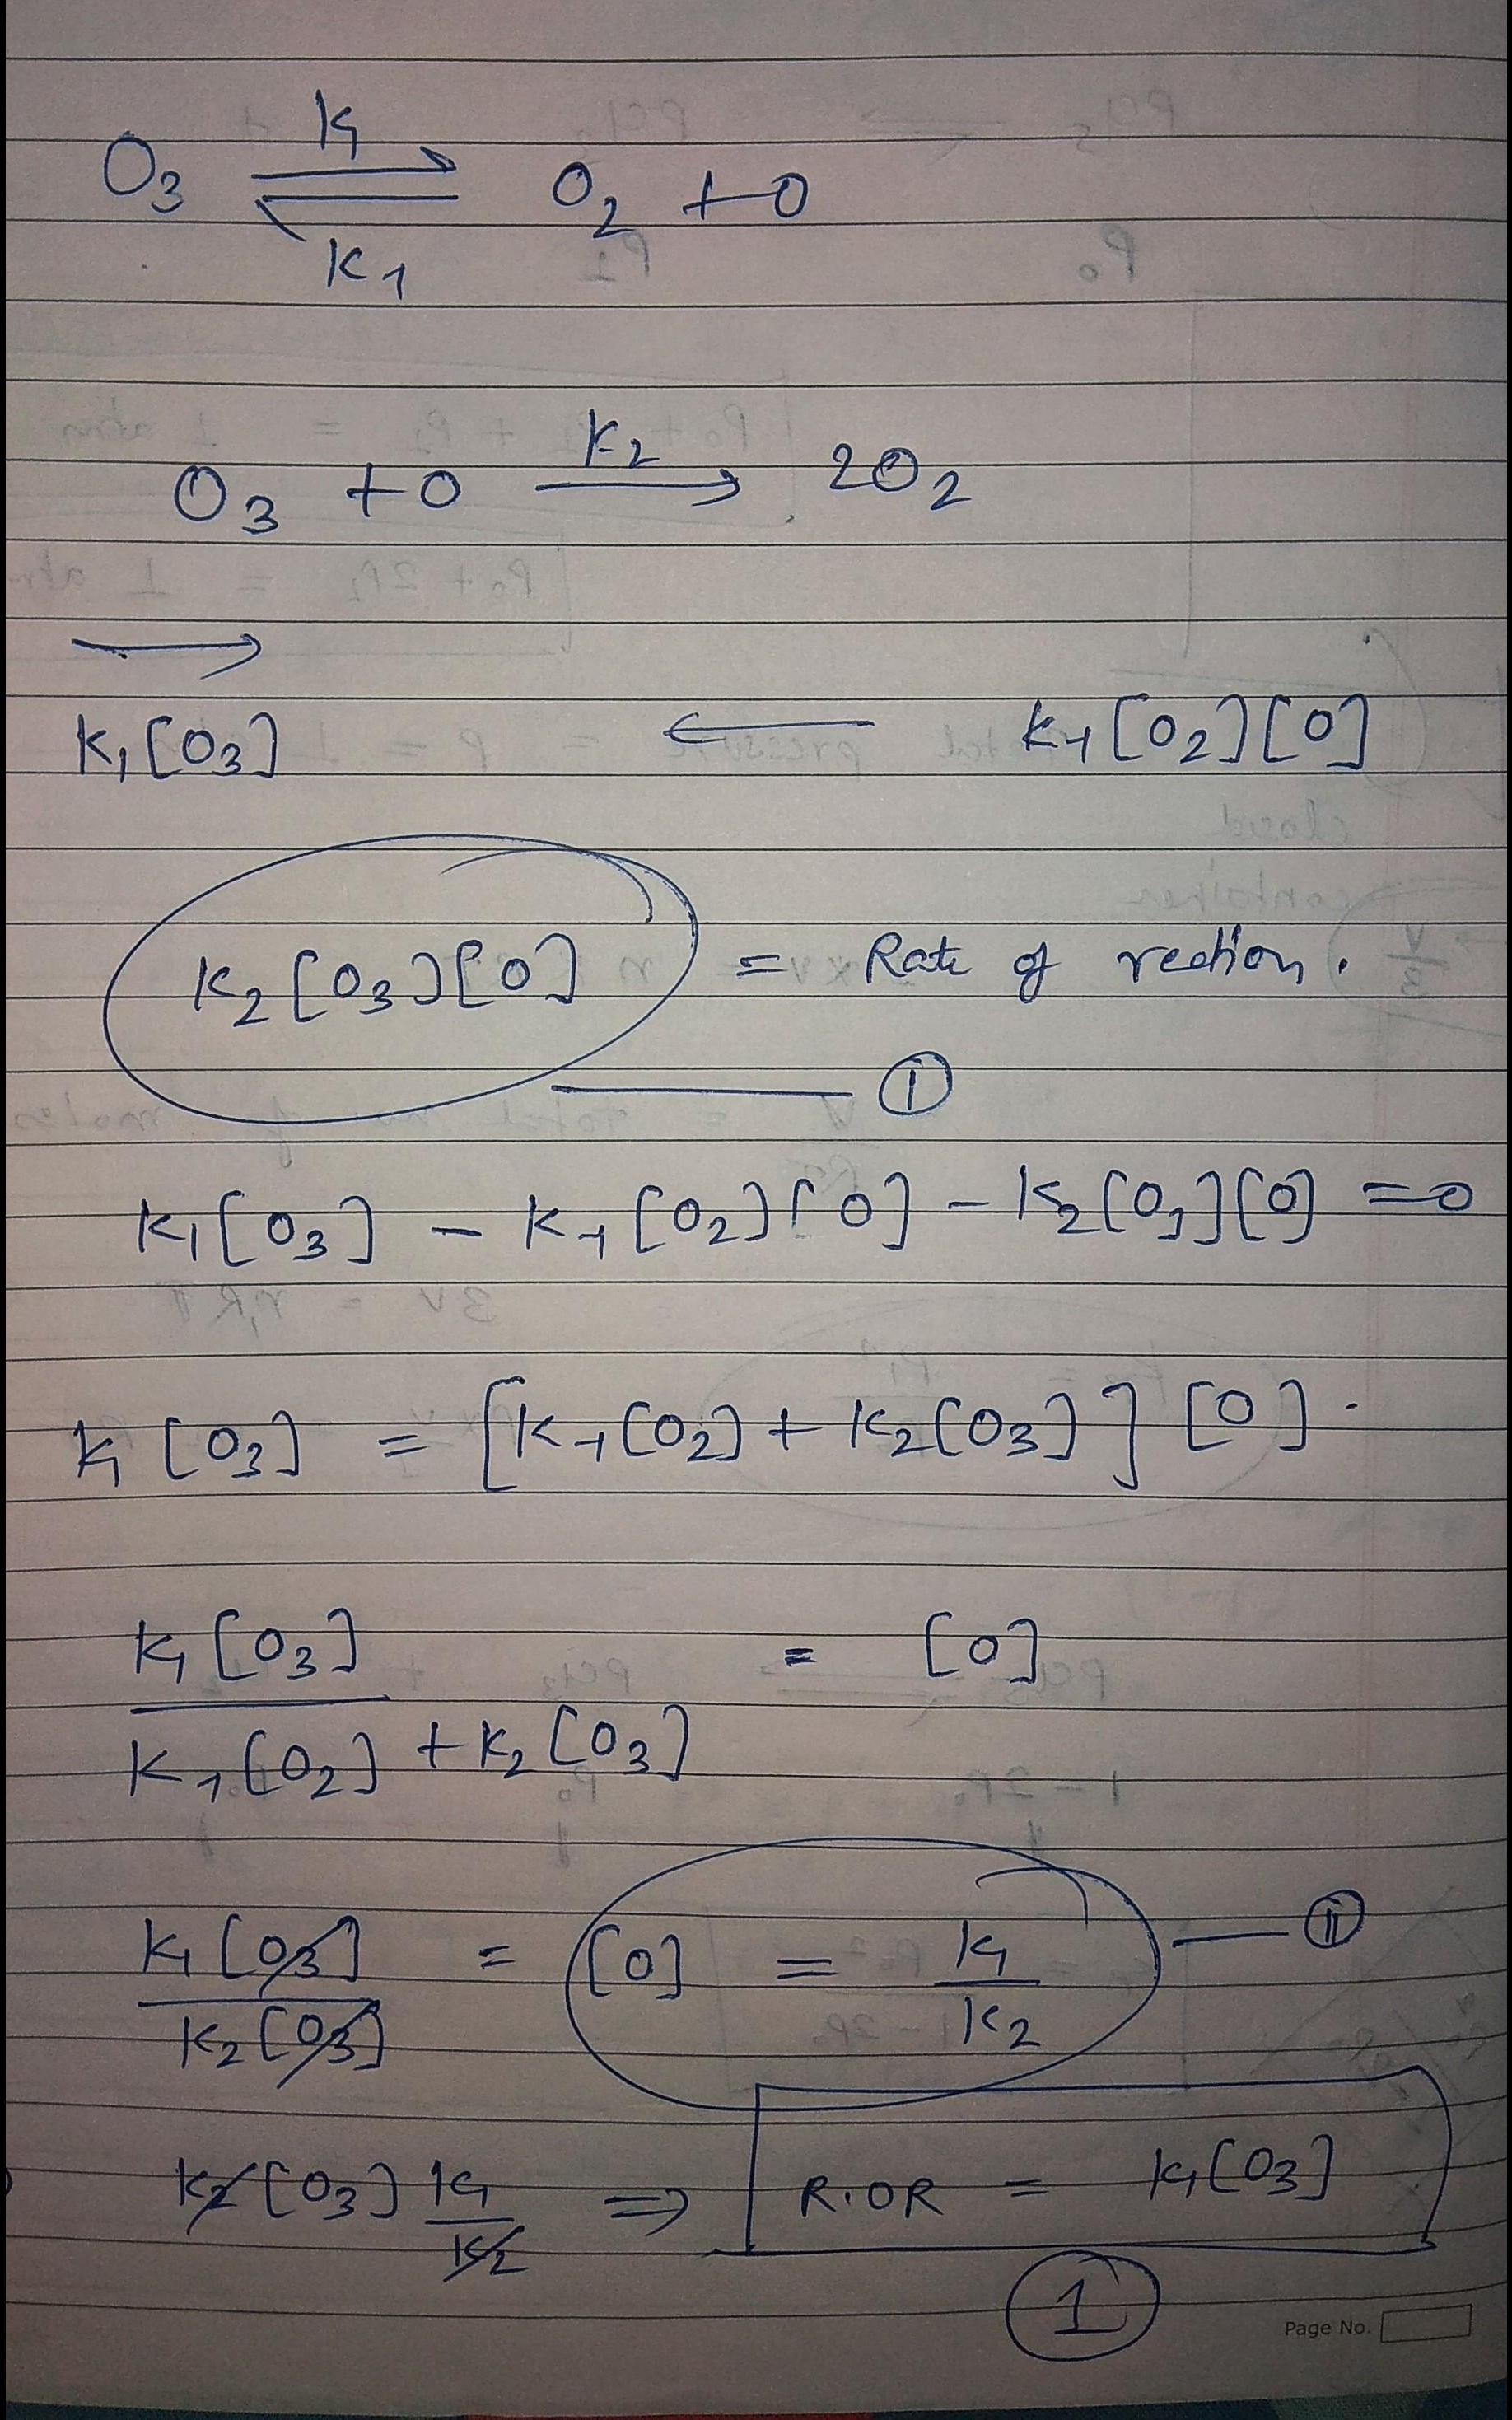 O₃ ⇌ O₂ + O
K₁
K₋₁
O₃ + O —K₂→ 2O₂
→
K₁[O₃] ← K₋₁[O₂][O]
K₂[O₃][O] = Rate of rection.
①
K₁[O₃] − K₋₁[O₂][O] − K₂[O₃][O] = 0
K₁[O₃] = [K₋₁[O₂] + K₂[O₃]][O].
K₁[O₃] / K₋₁[O₂] + K₂[O₃] = [O]
K₁[O₃] / K₂[O₃] = [O] = K₁ / K₂ — ⓘⓘ
K₂[O₃] K₁ / K₂ ⇒ R.OR = K₁[O₃]
①
Page No.